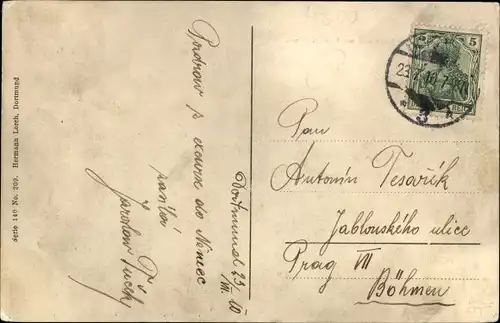 Serie 140 No. 209. Hermann Lorch, Dortmund
Pozdrav z
excurse do Němec
zasílá
Jaroslav
Dortmund 23/VII. 10
5 5
23.7.10.7-
* 3 *
Pan
Antonín Tesařík
Jablonského ulice
Prag VII
Böhmen